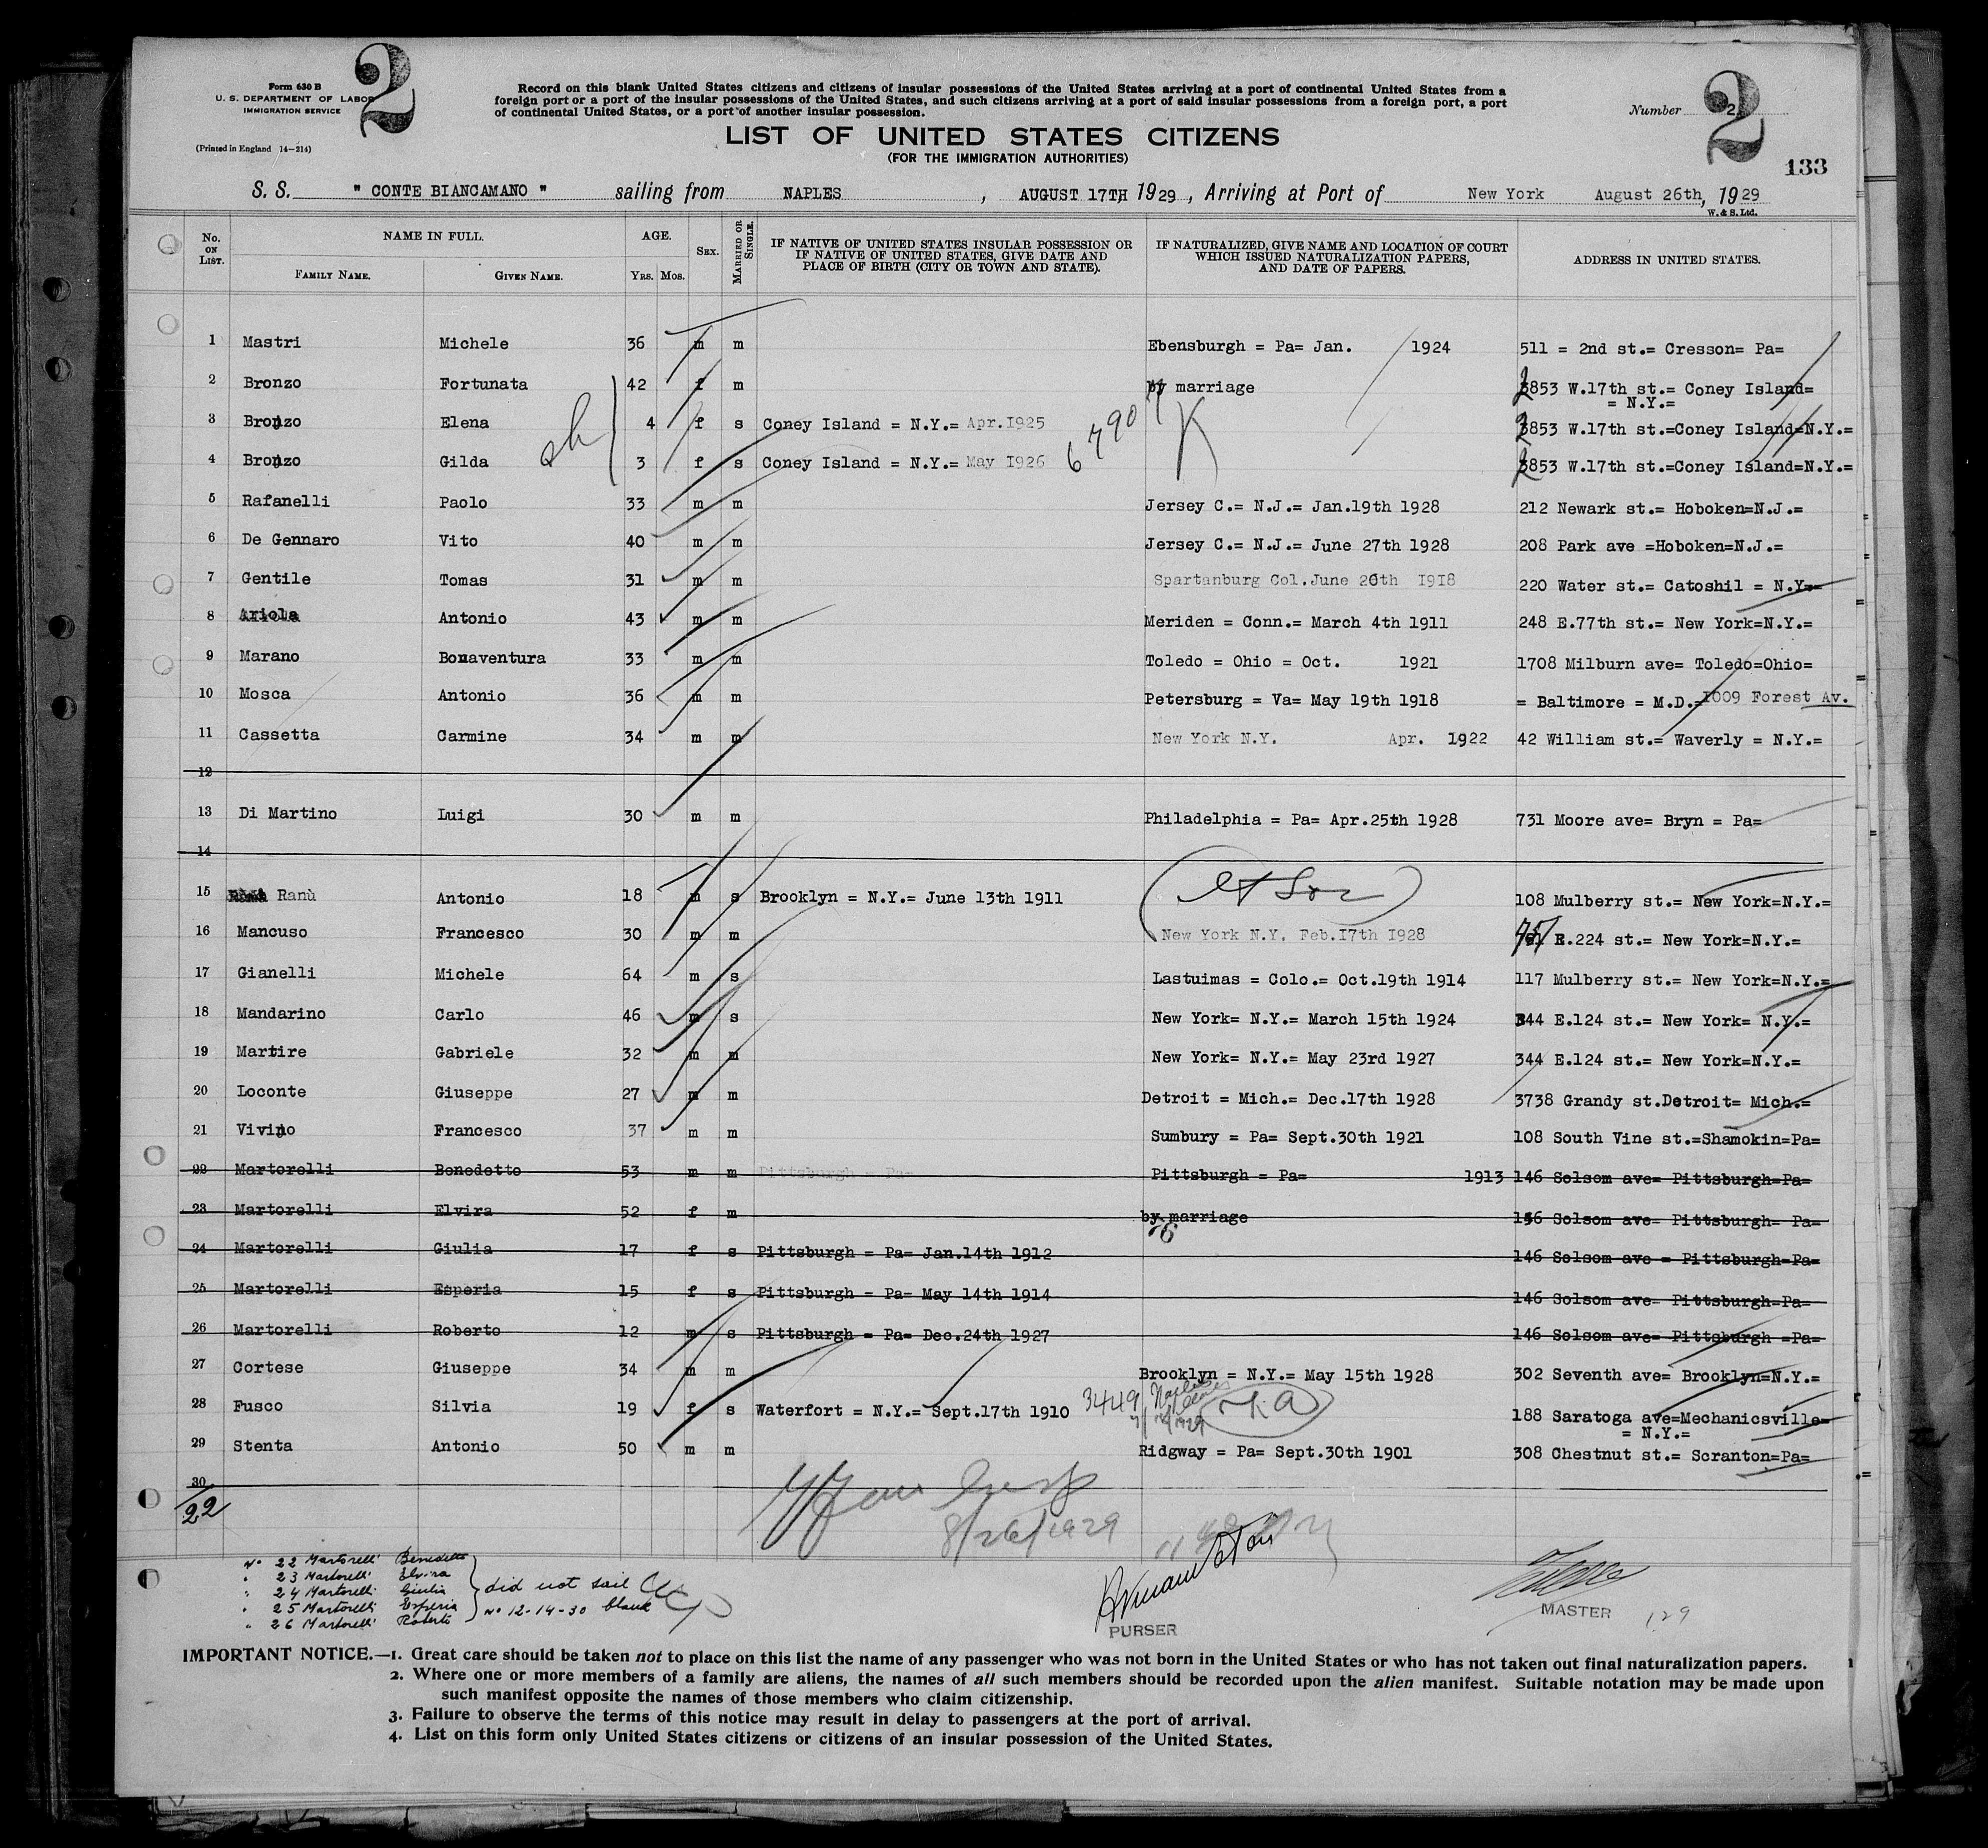 Form 630 B
U. S. DEPARTMENT OF LABOR
IMMIGRATION SERVICE
(Printed in England 14-214)
2
Record on this blank United States citizens and citizens of insular possessions of the United States arriving at a port of continental United States from a
foreign port or a port of the insular possessions of the United States, and such citizens arriving at a port of said insular possessions from a foreign port, a port
of continental United States, or a port of another insular possession.
LIST OF UNITED STATES CITIZENS
(FOR THE IMMIGRATION AUTHORITIES)
Number 2
2
133
S. S. " CONTE BIANCAMANO " sailing from NAPLES , AUGUST 17TH 1929 , Arriving at Port of New York August 26th, 1929
W. & S. Ltd.
No. ON LIST. NAME IN FULL. FAMILY NAME. GIVEN NAME. AGE. YRS. MOS. SEX. MARRIED OR SINGLE. IF NATIVE OF UNITED STATES INSULAR POSSESSION OR IF NATIVE OF UNITED STATES, GIVE DATE AND PLACE OF BIRTH (CITY OR TOWN AND STATE). IF NATURALIZED, GIVE NAME AND LOCATION OF COURT WHICH ISSUED NATURALIZATION PAPERS, AND DATE OF PAPERS. ADDRESS IN UNITED STATES.
1 Mastri Michele 36 m m Ebensburgh = Pa= Jan. 1924 511 = 2nd st.= Cresson= Pa=
2 Bronzo Fortunata 42 f m by marriage 3853 W.17th st.= Coney Island=
= N.Y.=
3 Bronzo Elena 4 f s Coney Island = N.Y.= Apr.I925 3853 W.17th st.=Coney Island=N.Y.=
4 Bronzo Gilda 3 f s Coney Island = N.Y.= May I926 6790 K 3853 W.17th st.=Coney Island=N.Y.=
5 Rafanelli Paolo 33 m m Jersey C.= N.J.= Jan.19th 1928 212 Newark st.= Hoboken=N.J.=
6 De Gennaro Vito 40 m m Jersey C.= N.J.= June 27th 1928 208 Park ave =Hoboken=N.J.=
7 Gentile Tomas 31 m m Spartanburg Col.June 26th I9I8 220 Water st.= Catoshil = N.Y.=
8 Ariola Antonio 43 m m Meriden = Conn.= March 4th 1911 248 E.77th st.= New York=N.Y.=
9 Marano Bonaventura 33 m m Toledo = Ohio = Oct. 1921 1708 Milburn ave= Toledo=Ohio=
10 Mosca Antonio 36 m m Petersburg = Va= May 19th 1918 = Baltimore = M.D.=I009 Forest Av.
11 Cassetta Carmine 34 m m New York N.Y. Apr. 1922 42 William st.= Waverly = N.Y.=
12
13 Di Martino Luigi 30 m m Philadelphia = Pa= Apr.25th 1928 731 Moore ave= Bryn = Pa=
14
15 Ranù Antonio 18 m s Brooklyn = N.Y.= June 13th 1911 108 Mulberry st.= New York=N.Y.=
16 Mancuso Francesco 30 m m New York N.Y. Feb.I7th I928 E.224 st.= New York=N.Y.=
17 Gianelli Michele 64 m s Lastuimas = Colo.= Oct.19th 1914 117 Mulberry st.= New York=N.Y.=
18 Mandarino Carlo 46 m s New York= N.Y.= March 15th 1924 344 E.124 st.= New York= N.Y.=
19 Martire Gabriele 32 m m New York= N.Y.= May 23rd 1927 344 E.124 st.= New York=N.Y.=
20 Loconte Giuseppe 27 m m Detroit = Mich.= Dec.17th 1928 3738 Grandy st.Detroit= Mich.=
21 Vivino Francesco 37 m m Sumbury = Pa= Sept.30th 1921 108 South Vine st.=Shamokin=Pa=
22 Martorelli Benedetto 53 m m Pittsburgh = Pa= Pittsburgh = Pa= 1913 146 Solsom ave= Pittsburgh=Pa=
23 Martorelli Elvira 52 f m by marriage 146 Solsom ave= Pittsburgh= Pa=
76
24 Martorelli Giulia 17 f s Pittsburgh = Pa= Jan.14th 1912 146 Solsom ave = Pittsburgh=Pa=
25 Martorelli Esperia 15 f s Pittsburgh = Pa= May 14th 1914 146 Solsom ave= Pittsburgh=Pa=
26 Martorelli Roberto 12 m s Pittsburgh = Pa= Dec.24th 1927 146 Solsom ave= Pittsburgh =Pa=
27 Cortese Giuseppe 34 m m Brooklyn = N.Y.= May 15th 1928 302 Seventh ave= Brooklyn=N.Y.=
28 Fusco Silvia 19 f s Waterfort = N.Y.= Sept.17th 1910 3449 Naples 188 Saratoga ave=Mechanicsville=
= N.Y.=
29 Stenta Antonio 50 m m Ridgway = Pa= Sept.30th 1901 308 Chestnut st.= Scranton=Pa=
30
22
8/26/1929
No 22 Martorelli Benedetto
" 23 Martorelli Elvira
" 24 Martorelli Giulia
" 25 Martorelli Esperia
" 26 Martorelli Roberto
did not sail
No 12-14-30 blank
PURSER
MASTER
129
IMPORTANT NOTICE.—1. Great care should be taken not to place on this list the name of any passenger who was not born in the United States or who has not taken out final naturalization papers.
2. Where one or more members of a family are aliens, the names of all such members should be recorded upon the alien manifest. Suitable notation may be made upon
such manifest opposite the names of those members who claim citizenship.
3. Failure to observe the terms of this notice may result in delay to passengers at the port of arrival.
4. List on this form only United States citizens or citizens of an insular possession of the United States.